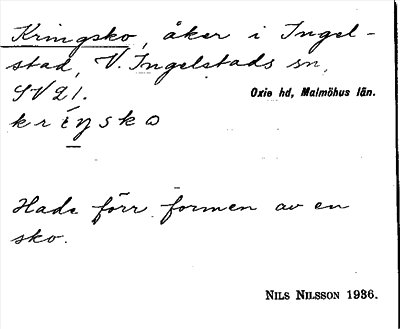 Kringsko, åker i Ingel-
stad, V. Ingelstads sn,
SV21. Oxie hd, Malmöhus län.
kríŋsko
Hade förr formen av en
sko.
NILS NILSSON 1936.